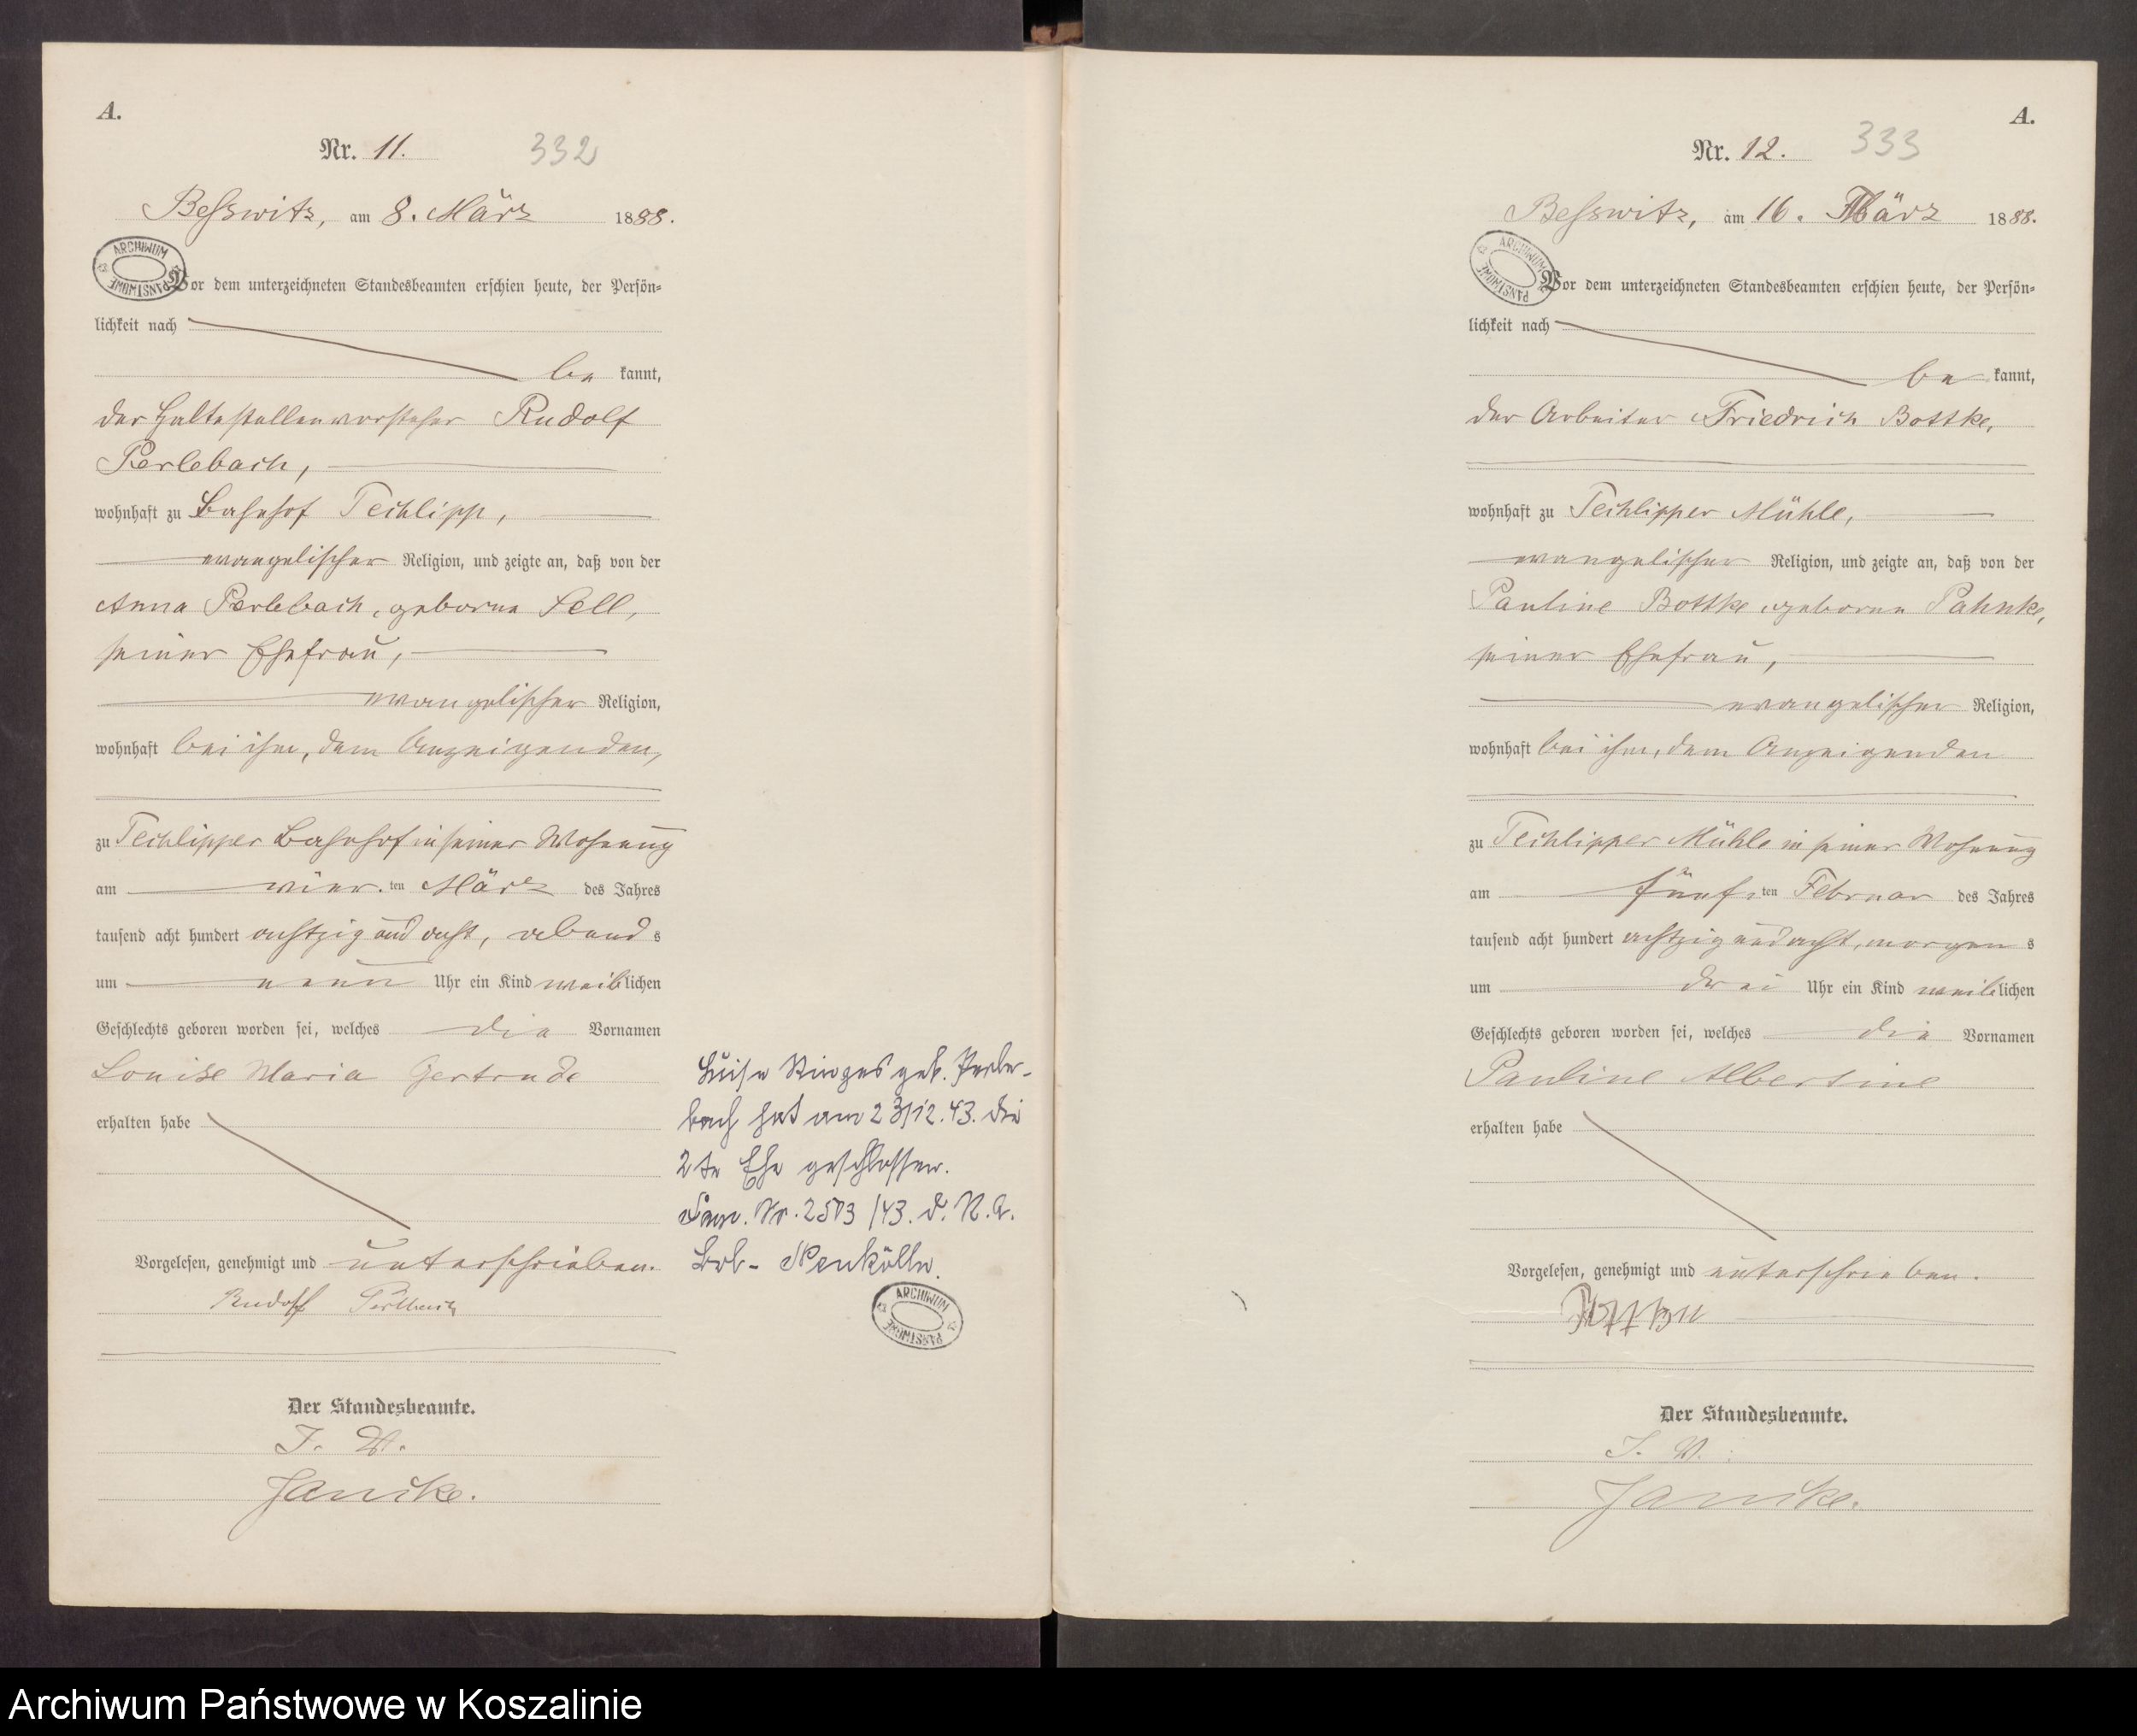 A.
Nr. 11. 332
Beßwitz, am 8. März 1888.
ARCHIWUM PAŃSTWOWE
Vor dem unterzeichneten Standesbeamten erschien heute, der Persön-
lichkeit nach
be kannt,
der Haltestellenvorsteher Rudolf
Perlebach,
wohnhaft zu Bahnhof Techlipp,
evangelischer Religion, und zeigte an, daß von der
Anna Perlebach, geborne Sell,
seiner Ehefrau,
evangelischer Religion,
wohnhaft bei ihm, dem Anzeigenden,
zu Techlipper Bahnhof in seiner Wohnung
am vier ten März des Jahres
tausend acht hundert achtzig und acht, abend s
um neun Uhr ein Kind weib lichen
Geschlechts geboren worden sei, welches die Vornamen
Louise Maria Gertrude
erhalten habe
Vorgelesen, genehmigt und unterschrieben.
Rudolf Perlbach
Der Standesbeamte.
J. V.
Janike.
Luise Ringes geb. Perle-
bach hat am 23/12.43. die
2te Ehe geschlossen.
Nr. 2503/43. d. St. A.
Bln- Neukölln.
ARCHIWUM PAŃSTWOWE
A.
Nr. 12. 333
Beßwitz, am 16. März 1888.
ARCHIWUM PAŃSTWOWE
Vor dem unterzeichneten Standesbeamten erschien heute, der Persön-
lichkeit nach
be kannt,
der Arbeiter Friedrich Bottke,
wohnhaft zu Techlipper Mühle,
evangelischer Religion, und zeigte an, daß von der
Pauline Bottke, geborne Pahnke,
seiner Ehefrau,
evangelischer Religion,
wohnhaft bei ihm, dem Anzeigenden
zu Techlipper Mühle in seiner Wohnung
am fünf ten Februar des Jahres
tausend acht hundert achtzig und acht, morgen s
um drei Uhr ein Kind weib lichen
Geschlechts geboren worden sei, welches die Vornamen
Pauline Albertine
erhalten habe
Vorgelesen, genehmigt und unterschrieben.
Der Standesbeamte.
J. V.:
Janike.
Archiwum Państwowe w Koszalinie